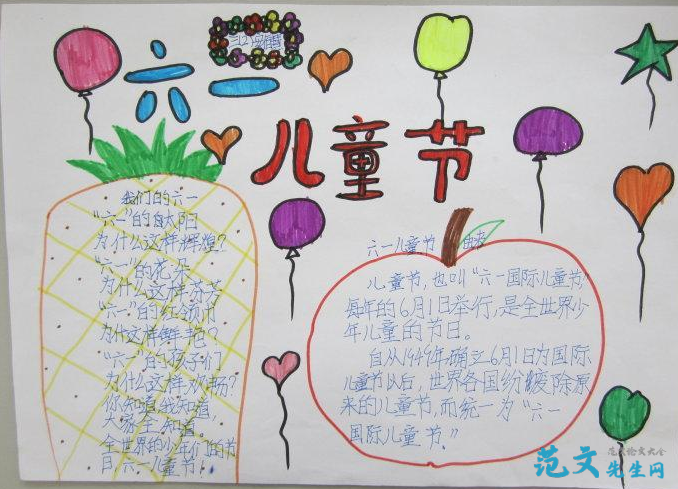 六一
儿童节
我们的六一
"六一"的太阳
为什么这样辉煌?
"六一"的花朵
为什么这样芬芳
"六一"的红领巾
为什这样鲜艳?
"六一"的孩子们
为什么这样欢畅?
你知道,我知道,
大家全知道。
全世界的少年们的节
日六一儿童节!
六一儿童节 由来
儿童节,也叫"六一国际儿童节"
每年的6月1日举行,是全世界少
年儿童的节日。
自从1949年确立6月1日为国际
儿童节以后,世界各国纷纷废除原
来的儿童节,而统一为"六一
国际儿童节。"
范文先生网
范文论文大全